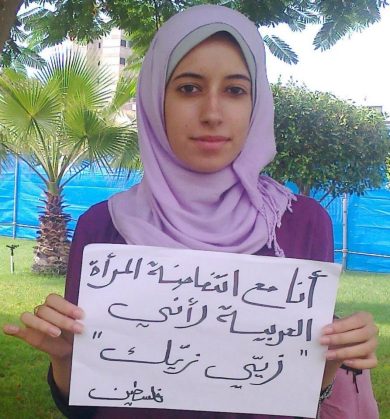 أنا مع انتفاضة المرأة
العربية لأنني
"زيّي زيّك"
فلسطين